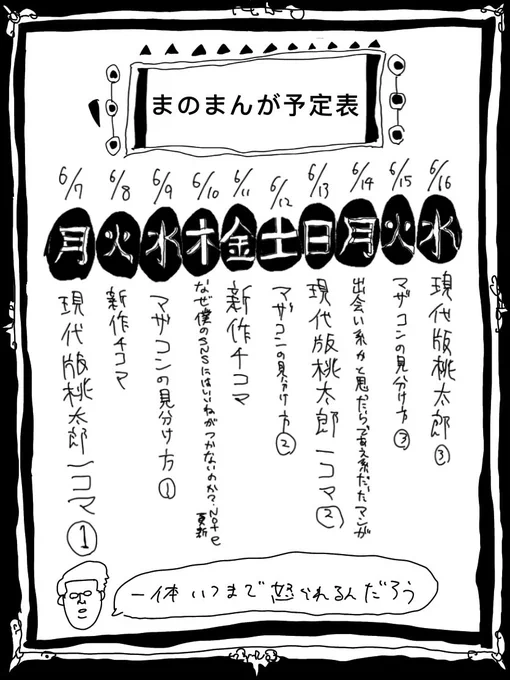 まのまんが予定表
6/7
月
現代版桃太郎一コマ①
6/8
火
新作4コマ
6/9
水
マザコンの見分け方①
6/10
木
なぜ僕のSNSにはいいねがつかないのか?note更新
6/11
金
新作4コマ
6/12
土
マザコンの見分け方②
6/13
日
現代版桃太郎一コマ②
6/14
月
出会い系かと思ったら
マンガ
6/15
火
マザコンの見分け方③
6/16
水
現代版桃太郎③
一体いつまで怒られるんだろう